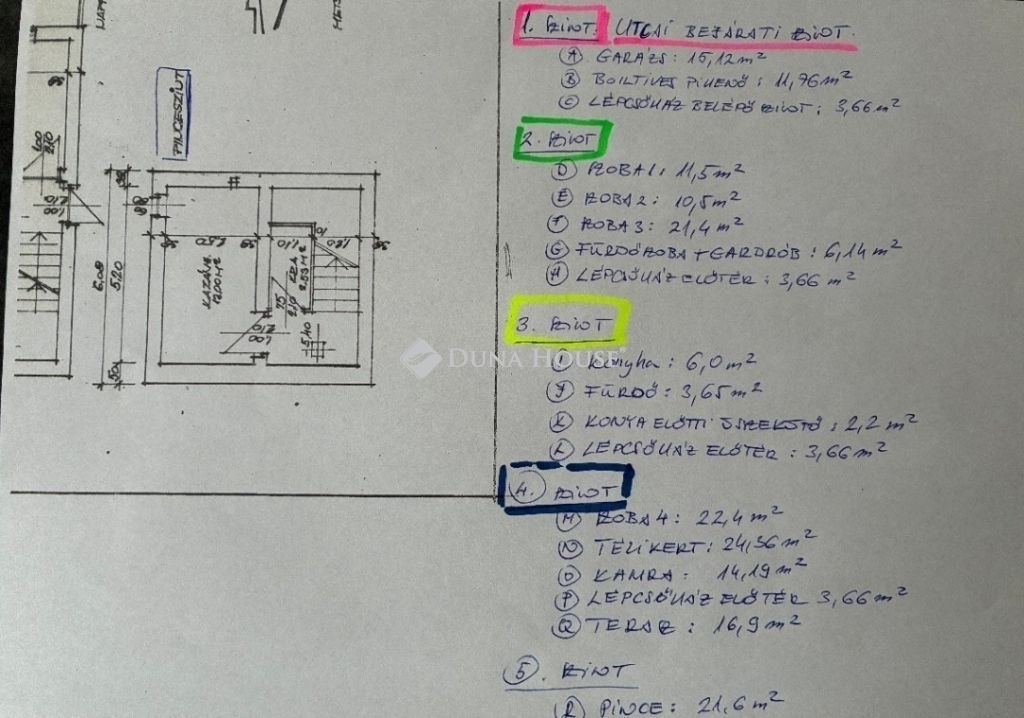 1. SZINT. UTCAI BEJÁRATI SZINT.
A GARÁZS: 15,12 m²
B BOLTÍVES PIHENŐ: 11,76 m²
C LÉPCSŐHÁZ BELÉPŐ SZINT: 3,66 m²
2. SZINT
D SZOBA 1: 11,5 m²
E SZOBA 2: 10,5 m²
F SZOBA 3: 21,4 m²
G FÜRDŐSZOBA + GARDRÓB: 6,14 m²
H LÉPCSŐHÁZ ELŐTÉR: 3,66 m²
3. SZINT
I Konyha: 6,0 m²
J FÜRDŐ: 3,65 m²
K KONYA ELŐTTI ÖSSZEKÖTŐ: 2,2 m²
L LÉPCSŐHÁZ ELŐTÉR: 3,66 m²
4. SZINT
M SZOBA 4: 22,4 m²
N TÉLIKERT: 24,36 m²
O KAMRA: 14,19 m²
P LÉPCSŐHÁZ ELŐTÉR 3,66 m²
Q TERASZ: 16,9 m²
5. SZINT
R PINCE: 21,6 m²
PINCESZINT
KAZÁN.
12,00 M²
6.00
5.20
50
75
2.10
100
2.10
5.40
1.10
DUNA HOUSE